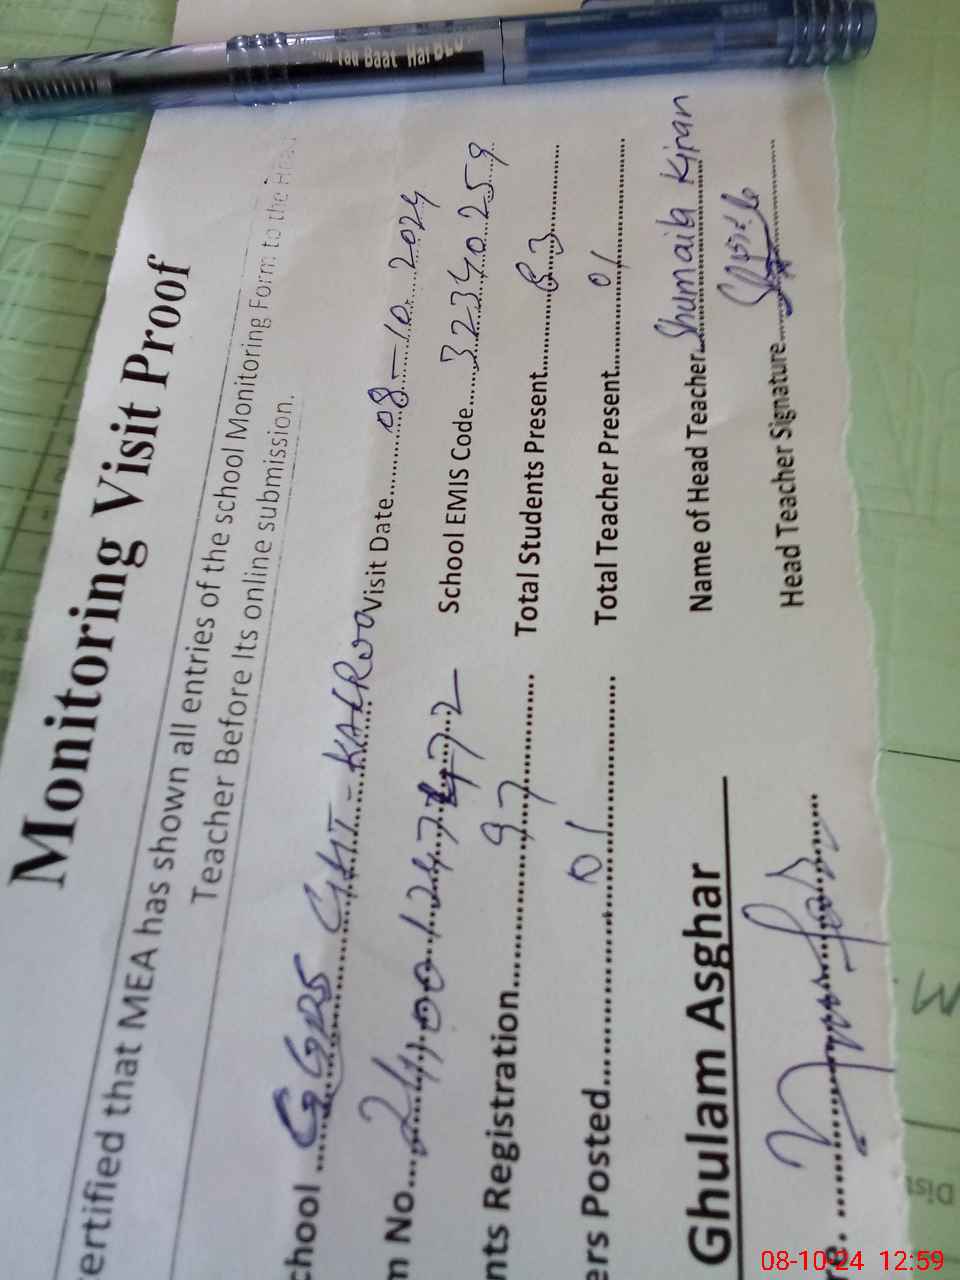 Monitoring Visit Proof
ertified that MEA has shown all entries of the school Monitoring Form to the Head
Teacher Before Its online submission.
chool ...... GGPS Visit Date......08-10-2024
m No... School EMIS Code......32340259
nts Registration......97 Total Students Present......83
ers Posted......01 Total Teacher Present......01
Ghulam Asghar Name of Head Teacher..Shumaila Kiran
Head Teacher Signature......
08-10-24 12:59